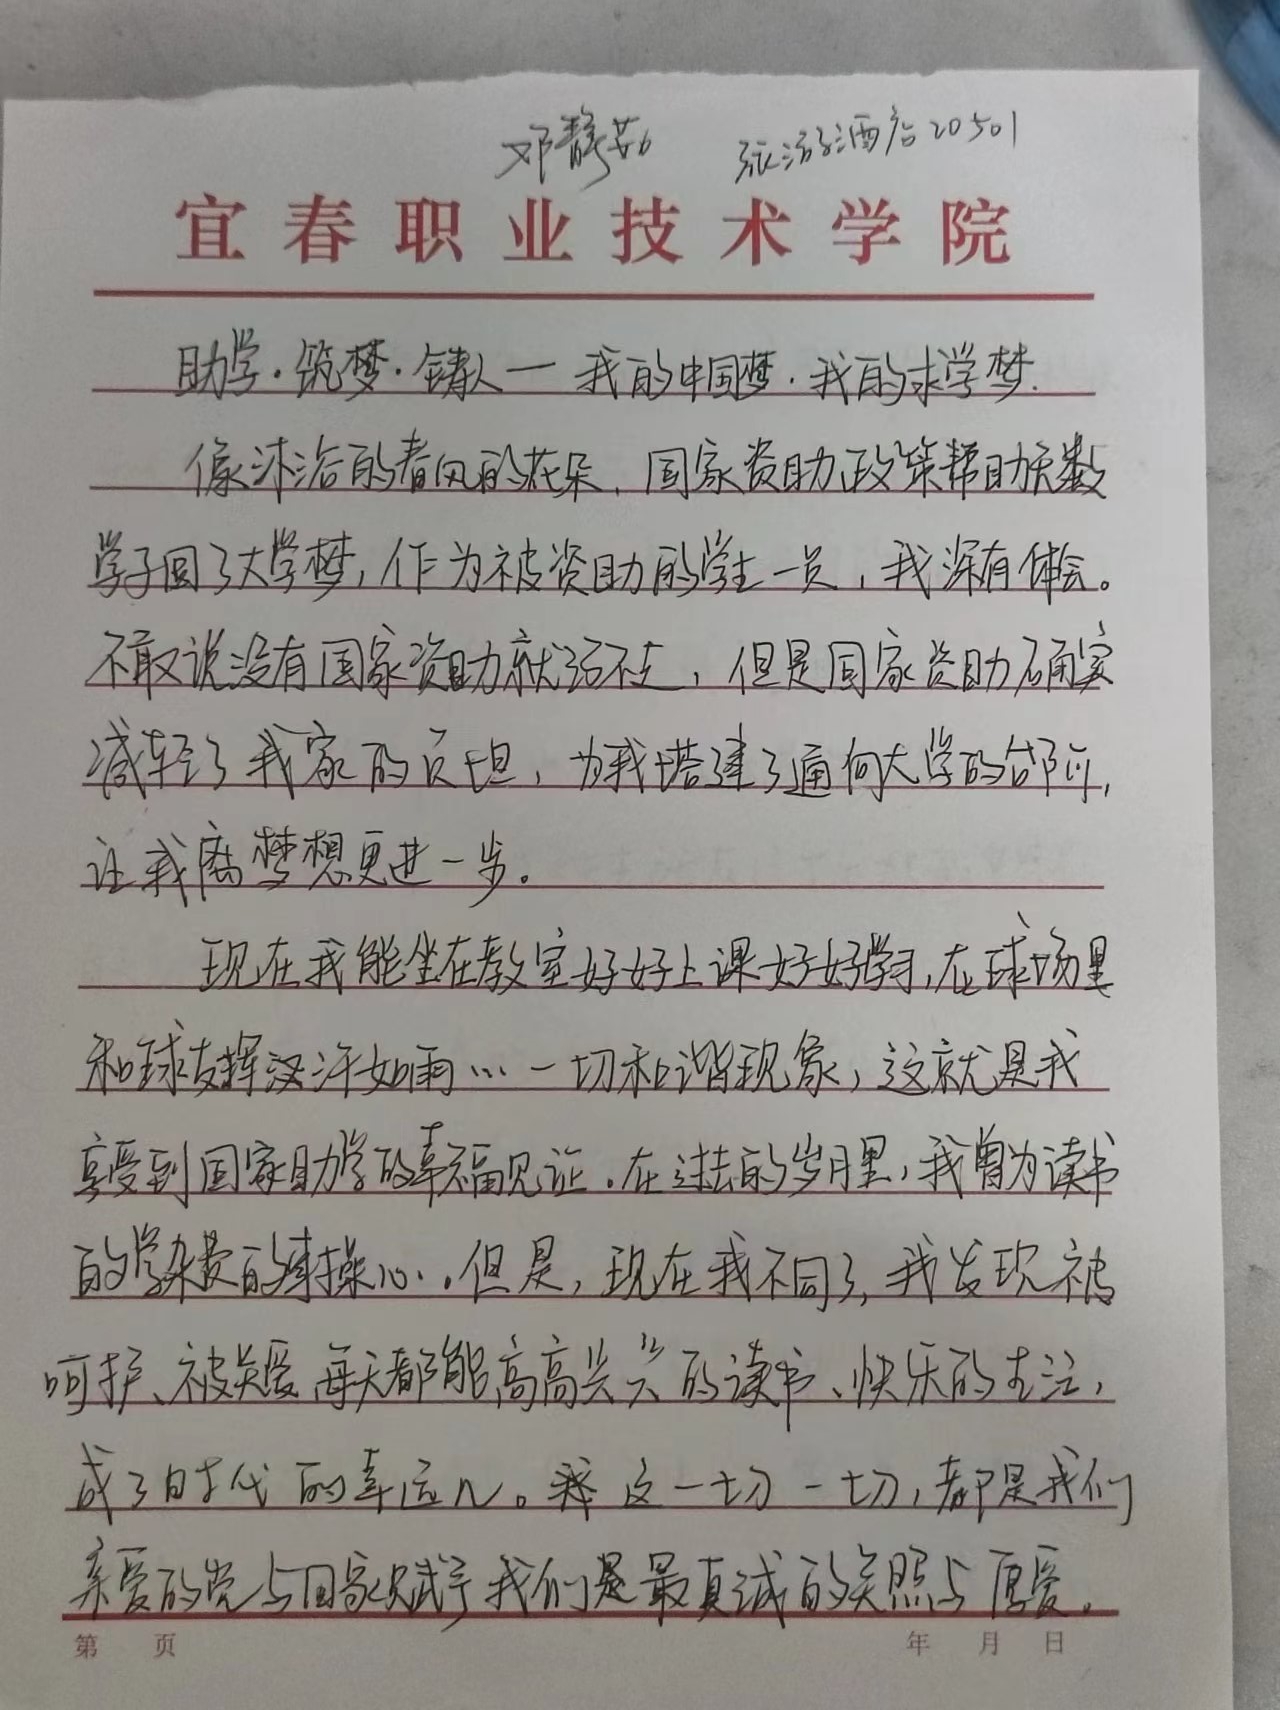 邓静茹 旅游酒店20501
宜春职业技术学院
助学·筑梦·铸人一我的中国梦·我的求学梦.
像沐浴的春风的花朵，国家资助政策帮助无数
学子圆了大学梦，作为被资助的学生一员，我深有体会。
不敢说没有国家资助就活不起，但是国家资助确实
减轻了我家的负担，为我搭建了通向大学的
让我离梦想更进一步。
现在我能坐在教室好好上课好好学习，在球场里
和球友挥汉汗如雨…一切和谐现象，这就是我
享受到国家助学的幸福见证。在过去的岁月里，我曾为读书
的学杂费的事操心。但是，现在我不同了，我发现被
呵护、被关爱每天都能高高兴兴的读书、快乐的生活，
成了时代的幸运儿。这一切一切，都是我们
亲爱的党与国家赋予我们是最真诚的关照与厚爱。
第 页 年 月 日